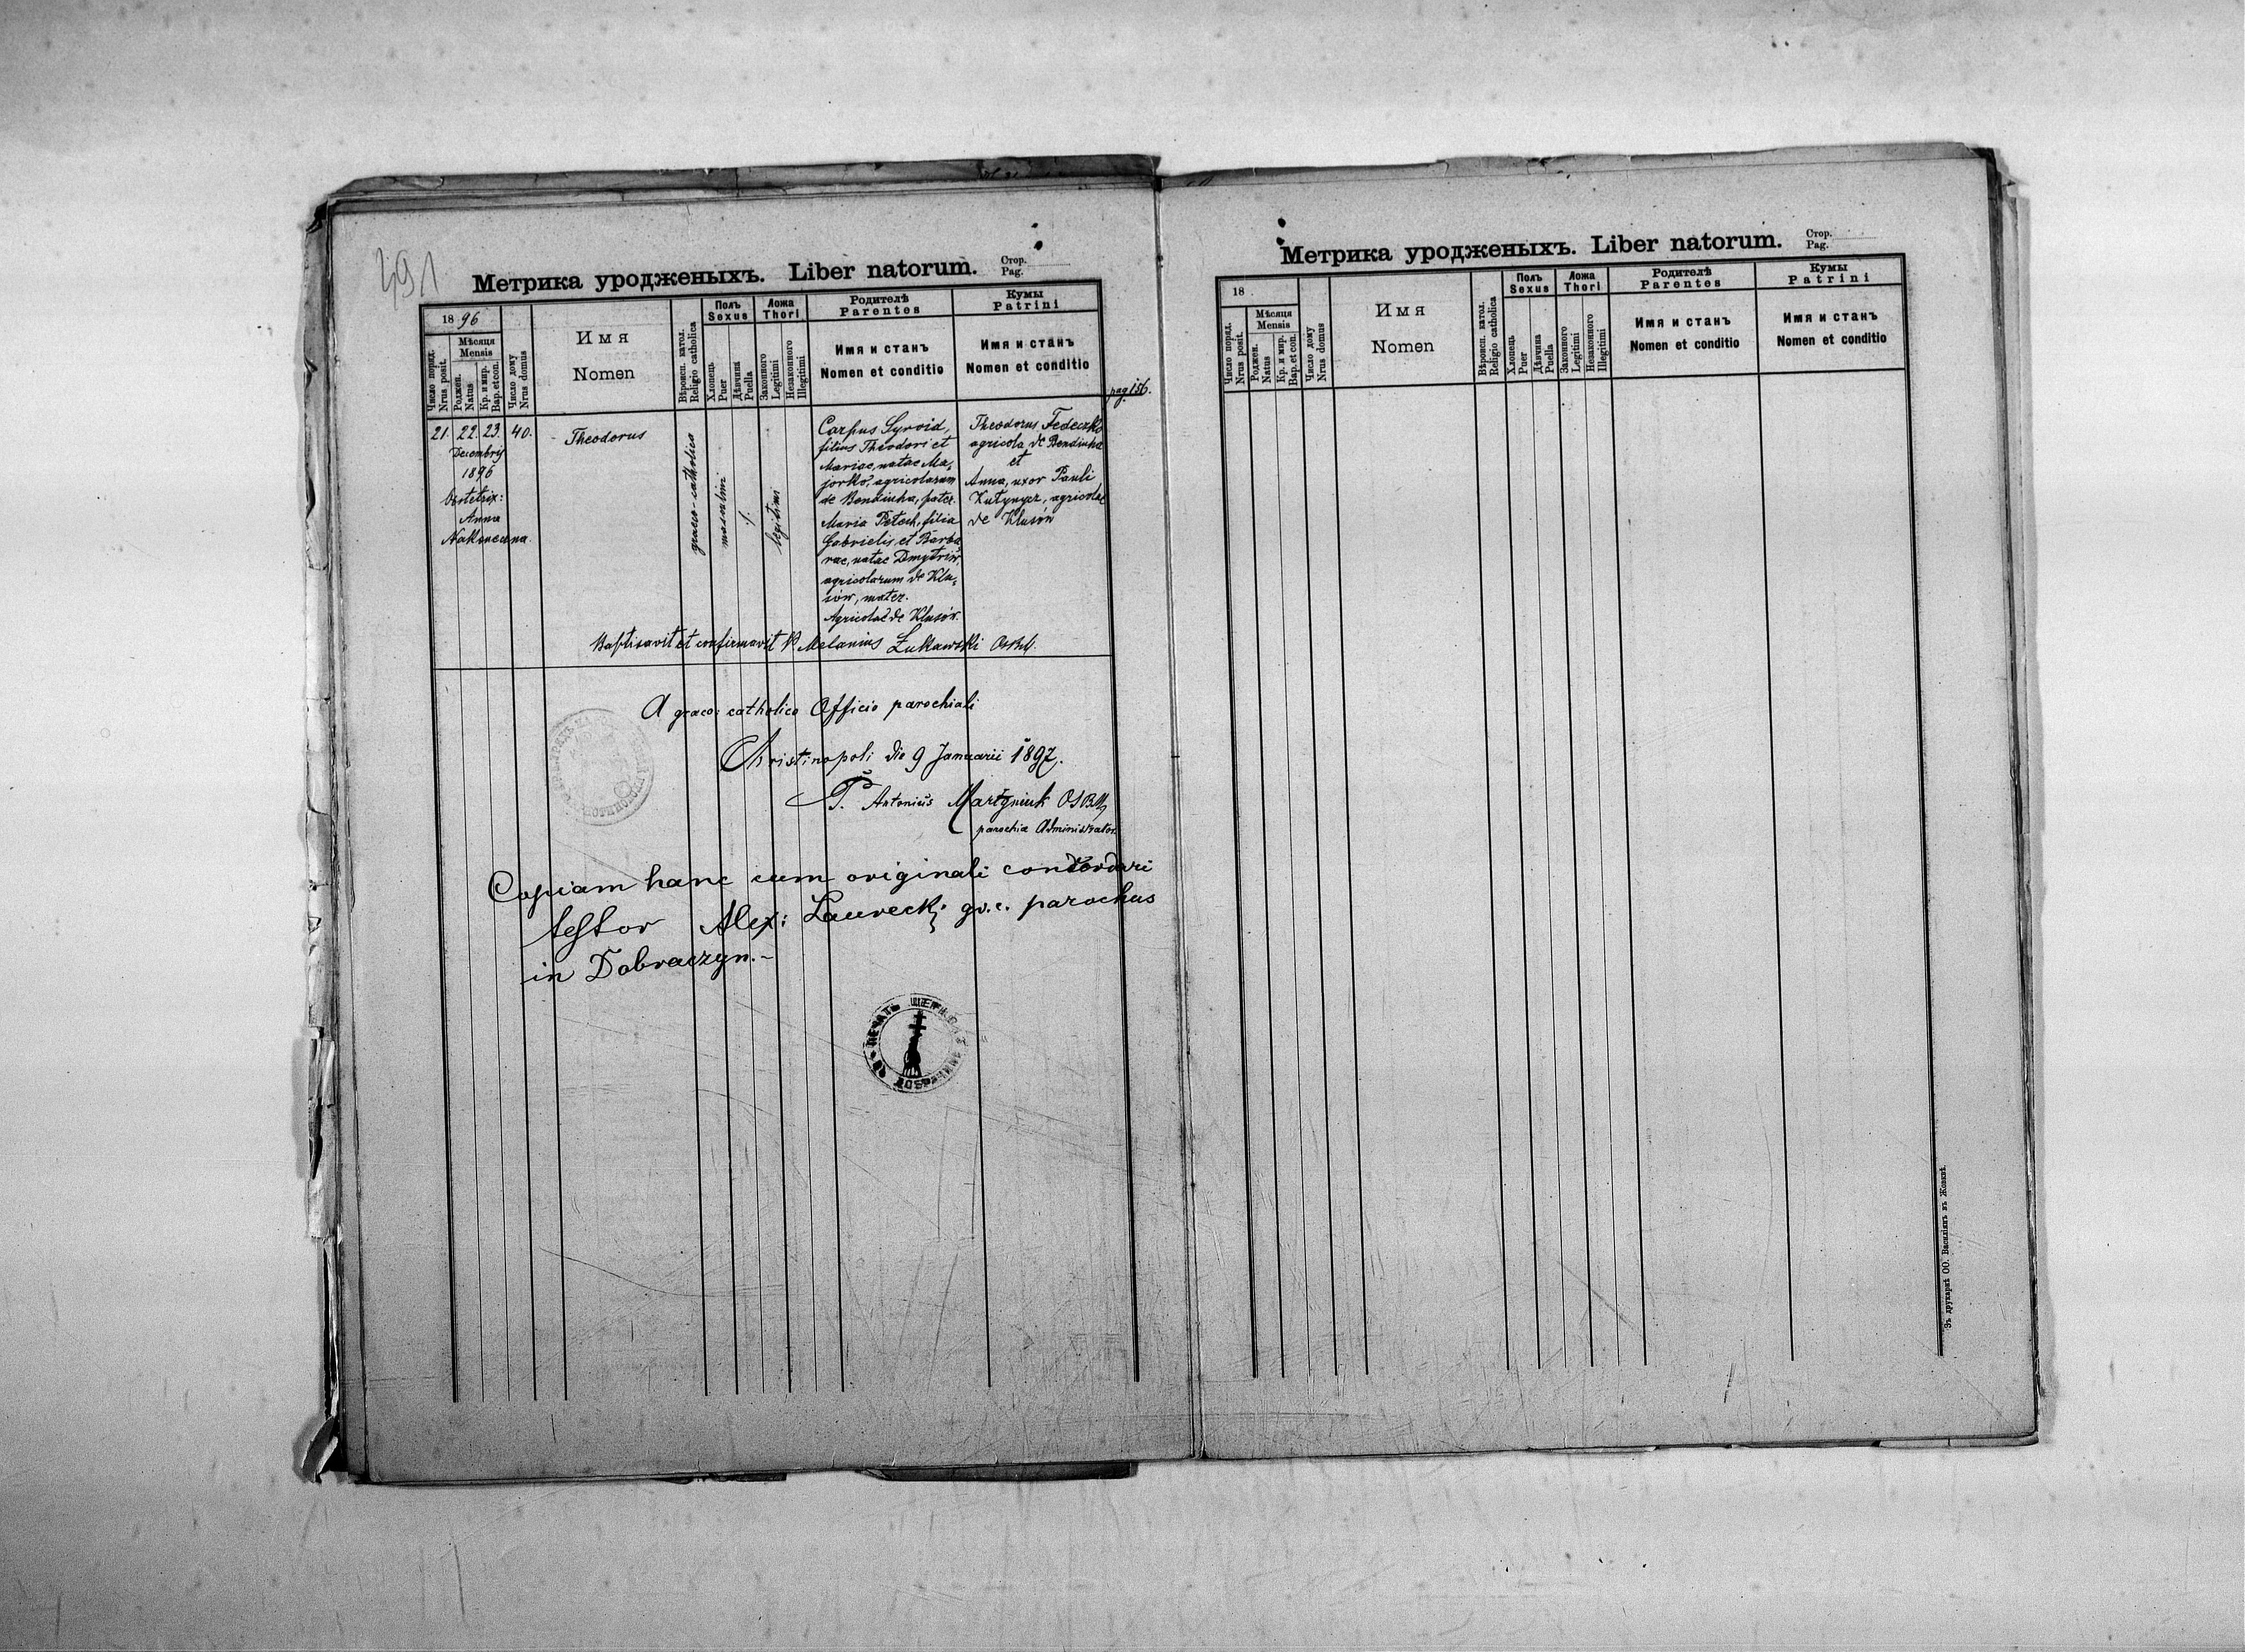 491
Метрика уродженыхъ. Liber natorum.
Стор.
Pag.
1896
Число поряд.
Nrus posit.
Мѣсяця
Mensis
Роджен.
Natus
Кр. и мир.
Bap. et con.
Число дому
Nrus domus
Имя
Nomen
Вѣроисп. катол.
Religio catholica
Полъ
Sexus
Хлопець
Puer
Дѣвчина
Puella
Ложа
Thori
Законного
Legitimi
Незаконного
Illegitimi
Родителѣ
Parentes
Имя и станъ
Nomen et conditio
Кумы
Patrini
Имя и станъ
Nomen et conditio
pag. 156.
21. 22. 23. 40.
Decembris
1896
Obstetrix:
Anna
Nakoneczna.
Theodorus
graeco-catholica
masculini
/.
legitimi
Carpus Syroid,
filius Theodori et
Mariae, natae Ma-
jorko, agricolarum
de Bendiuha, pater.
Maria Petech, filia
Gabrielis et Barba
rae, natae Dmytriw,
agricolarum de Klu-
sów, mater.
Agricolae de Klusów.
Theodorus Fedeczko
agricola de Bendiuha
et
Anna, uxor Pauli
Kutynycz, agricolae
de Klusów
Baptisavit et confirmavit P. Melanius Łukawski OSBM.
A graeco: catholico Officio parochiali
Christinopoli die 9 Januarii 1897.
P. Antonius Martyniuk OSBM
parochiae Administrator.
Copiam hanc cum originali concordari
testor Alex: Laurecki gr. c. parochus
in Dobraczyn.-
ПЕЧАТЬ
Метрика уродженыхъ. Liber natorum.
Стор.
Pag.
18
Число поряд.
Nrus posit.
Мѣсяця
Mensis
Роджен.
Natus
Кр. и мир.
Bap. et con.
Число дому
Nrus domus
Имя
Nomen
Вѣроисп. катол.
Religio catholica
Полъ
Sexus
Хлопець
Puer
Дѣвчина
Puella
Ложа
Thori
Законного
Legitimi
Незаконного
Illegitimi
Родителѣ
Parentes
Имя и станъ
Nomen et conditio
Кумы
Patrini
Имя и станъ
Nomen et conditio
Зъ друкарнѣ ОО. Василіянъ въ Жовквѣ.